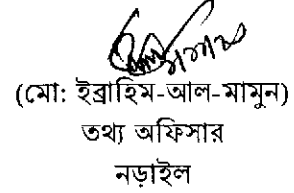 (মো: ইব্রাহিম-আল-মামুন)
তথ্য অফিসার
নড়াইল